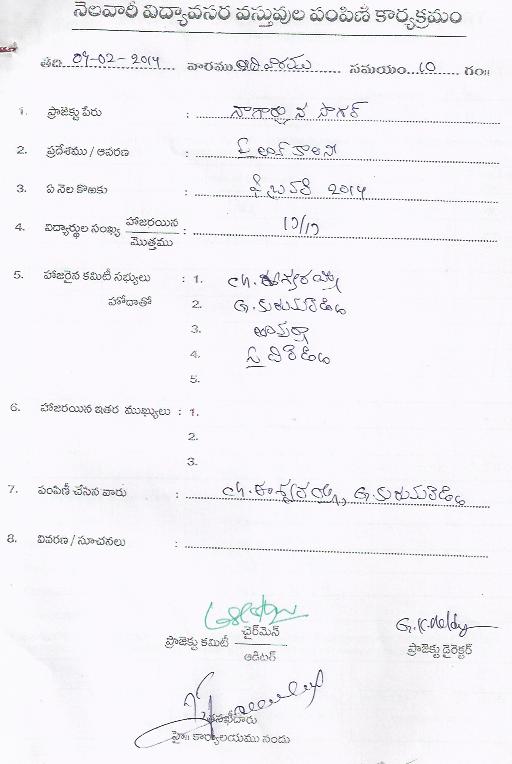 నెలవారీ విద్యావసర వస్తువుల పంపిణీ కార్యక్రమం
తేది 09-02-2014 వారము ఆదివారము సమయం 10 గం॥
1. ప్రాజెక్టు పేరు : నాగార్జున సాగర్
2. ప్రదేశము / ఆవరణ : కాలని
3. ఏ నెల కొఱకు : ఫిబ్రవరి 2014
4. విద్యార్థుల సంఖ్య హాజరయిన / మొత్తము : 17/17
5. హాజరైన కమిటీ సభ్యులు : 1. Ch. ఈశ్వరయ్య
హోదాతో 2. G.
3.
4.
5.
6. హాజరయిన ఇతర ముఖ్యులు : 1.
2.
3.
7. పంపిణీ చేసిన వారు : Ch. ఈశ్వరయ్య, G.
8. వివరణ / సూచనలు :
ప్రాజెక్టు కమిటీ ఛైర్‌మెన్ / ఆడిటర్
G.K Reddy
ప్రాజెక్టు డైరెక్టర్
తనఖీదారు
హై॥ కార్యాలయము నందు